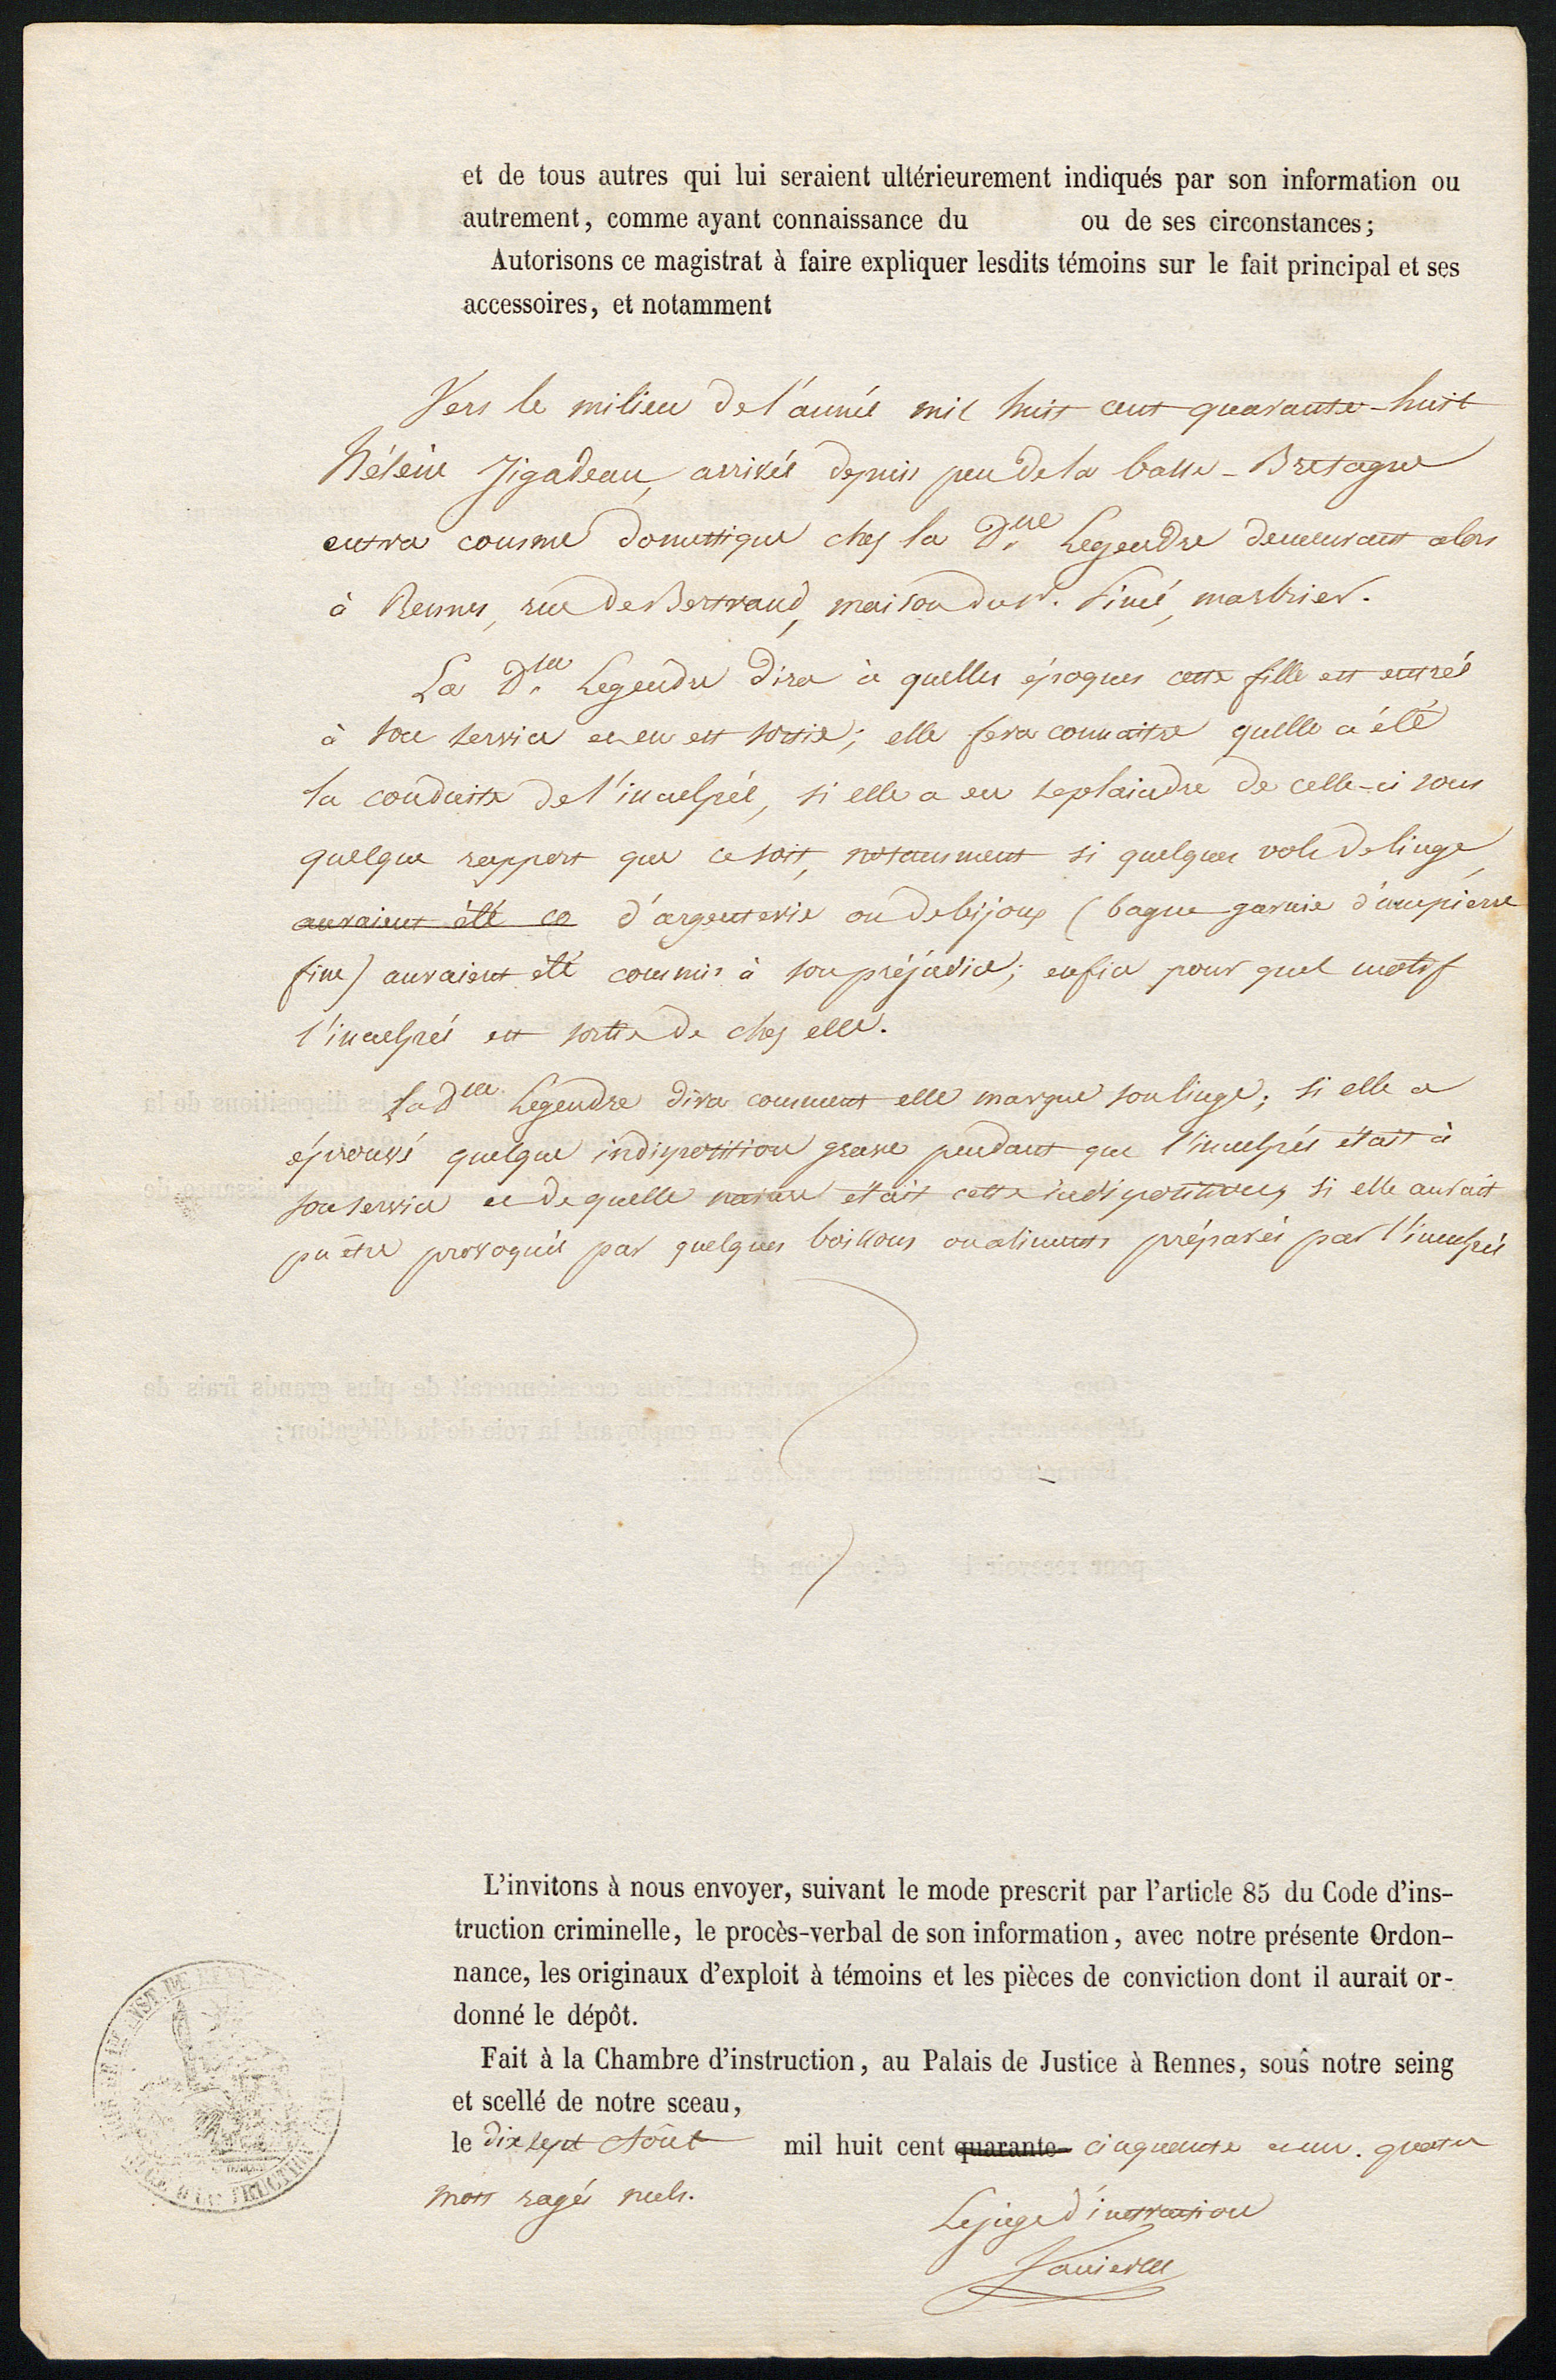 et de tous autres qui lui seraient ultérieurement indiqués par son information ou
autrement, comme ayant connaissance du ou de ses circonstances;
Autorisons ce magistrat à faire expliquer lesdits témoins sur le fait principal et ses
accessoires, et notamment
Vers le milieu de l'année mil huit cent quarante-huit
Hélène Jigadeau, arrivée depuis peu de la basse-Bretagne
entra comme domestique chez la Dlle Legendre demeurant alors
à Rennes, rue de Bertrand, maison du Sr. Simé, marbrier.
La Dlle Legendre dira à quelles époques cette fille est entrée
à son service et en est sortie; elle fera connaître quelle a été
la conduite de l'inculpée, si elle a eu se plaindre de celle-ci sous
quelque rapport que ce soit, notamment si quelques vols de linge,
auraient été co d'argenterie ou de bijoux (bague garnie d'une pierre
fine) auraient été commis à son préjudice; enfin pour quel motif
l'inculpée est sortie de chez elle.
La Dlle Legendre dira comment elle marque son linge; si elle a
éprouvé quelque indisposition grave pendant que l'inculpée était à
son service et de quelle nature était cette indisposition, si elle aurait
pu être provoquée par quelques boissons ou aliments préparés par l'inculpée
L'invitons à nous envoyer, suivant le mode prescrit par l'article 85 du Code d'ins-
truction criminelle, le procès-verbal de son information, avec notre présente Ordon-
nance, les originaux d'exploit à témoins et les pièces de conviction dont il aurait or-
donné le dépôt.
Fait à la Chambre d'instruction, au Palais de Justice à Rennes, sous notre seing
et scellé de notre sceau,
le dix sept Août mil huit cent quarante- cinquante et un. quatre
mots rayés nuls.
Le juge d'instruction